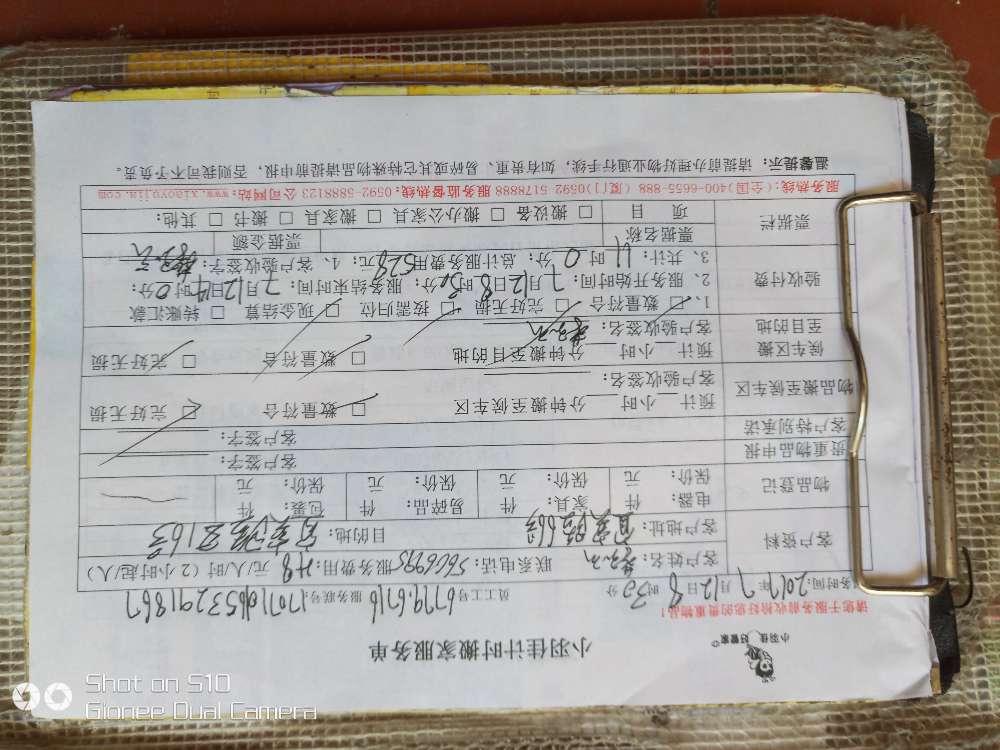 小羽佳 好管家
小羽佳计时搬家服务单
请您于服务前收拾好您的贵重物品!
员工工号6779.6716 服务联号:
务时间:2017年7月12日8时30分
客户资料
客户姓名: 联系电话:5606695 服务费用:48元/人/时(2小时起/人)
客户地址: 目的地:
物品登记
电器: 件 家具: 件 易碎品: 件 包裹: 件
保价: 元 保价: 元 保价: 元 保价: 元
贵重物品申报 客户签字:
客户特别承诺 客户签字:
物品搬至候车区
预计 小时 分钟搬至候车区 □ 数量符合 □ 完好无损
客户验收签名:
候车区搬至目的地
预计 小时 分钟搬至目的地 □ 数量符合 □ 完好无损
客户验收签名:
验收付费
1、□ 数量符合 □ 完好无损 □ 按需归位 □ 现金结算 □ 转账汇款
2、服务开始时间:7月12日8时30分; 服务结束时间:7月12日14时0分;
3、共计:11时0分; 总计服务费用528元。4、客户验收签字:
票据栏
票据名称 票据金额
项 目 □ 搬设备 □ 搬办公家具 □ 搬家具 □ 搬书 □ 其他:
服务热线:(全国)400-6655-888 (厦门)0592-5178888 服务监督热线:0592-5888123 公司网站:www.xiaoyujia.com
温馨提示:请提前办理好物业通行手续,如有贵重、易碎或其它特殊物品请提前申报,否则我司不予负责。
Shot on S10
Gionee Dual Camera